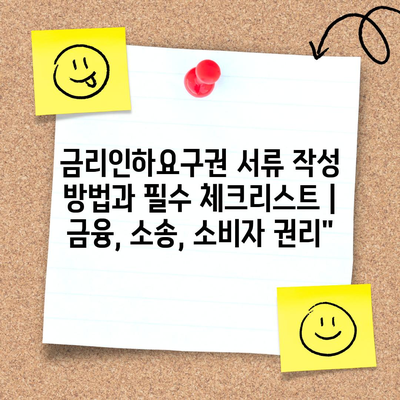 금리인하요구권 서류 작성
방법과 필수 체크리스트 |
금융, 소송, 소비자 권리"